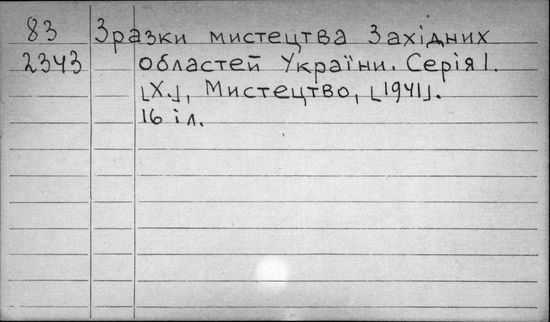 83 Зразки мистецтва Західних
2343 областей України. Серія 1.
[Х.], Мистецтво, [1941].
16 іл.